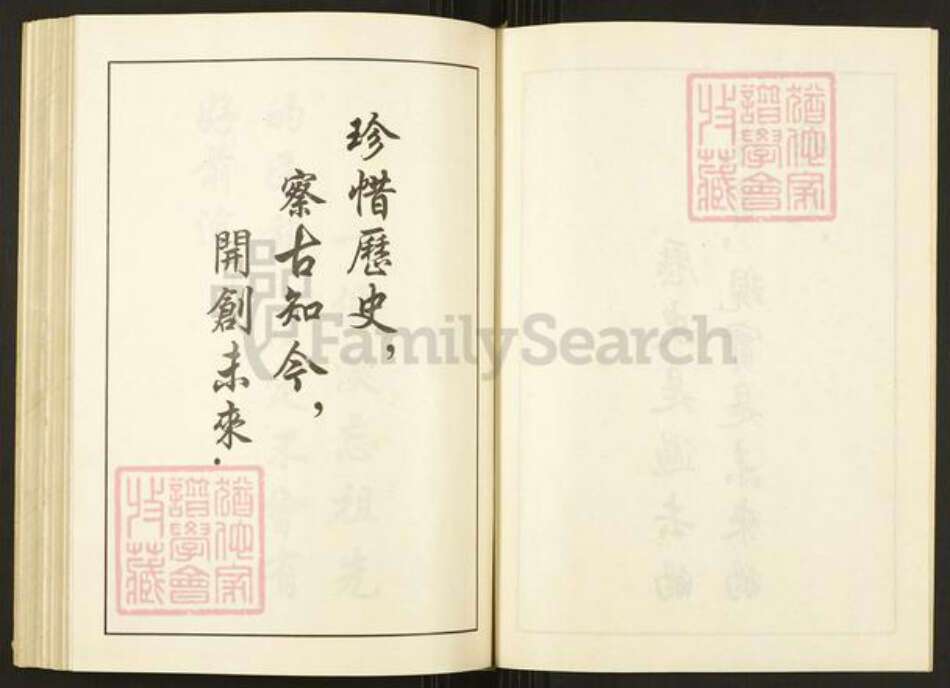 珍惜歷史，
察古知今，
開創未來.
猶他家
譜學會
收藏
猶他家
譜學會
收藏
FamilySearch